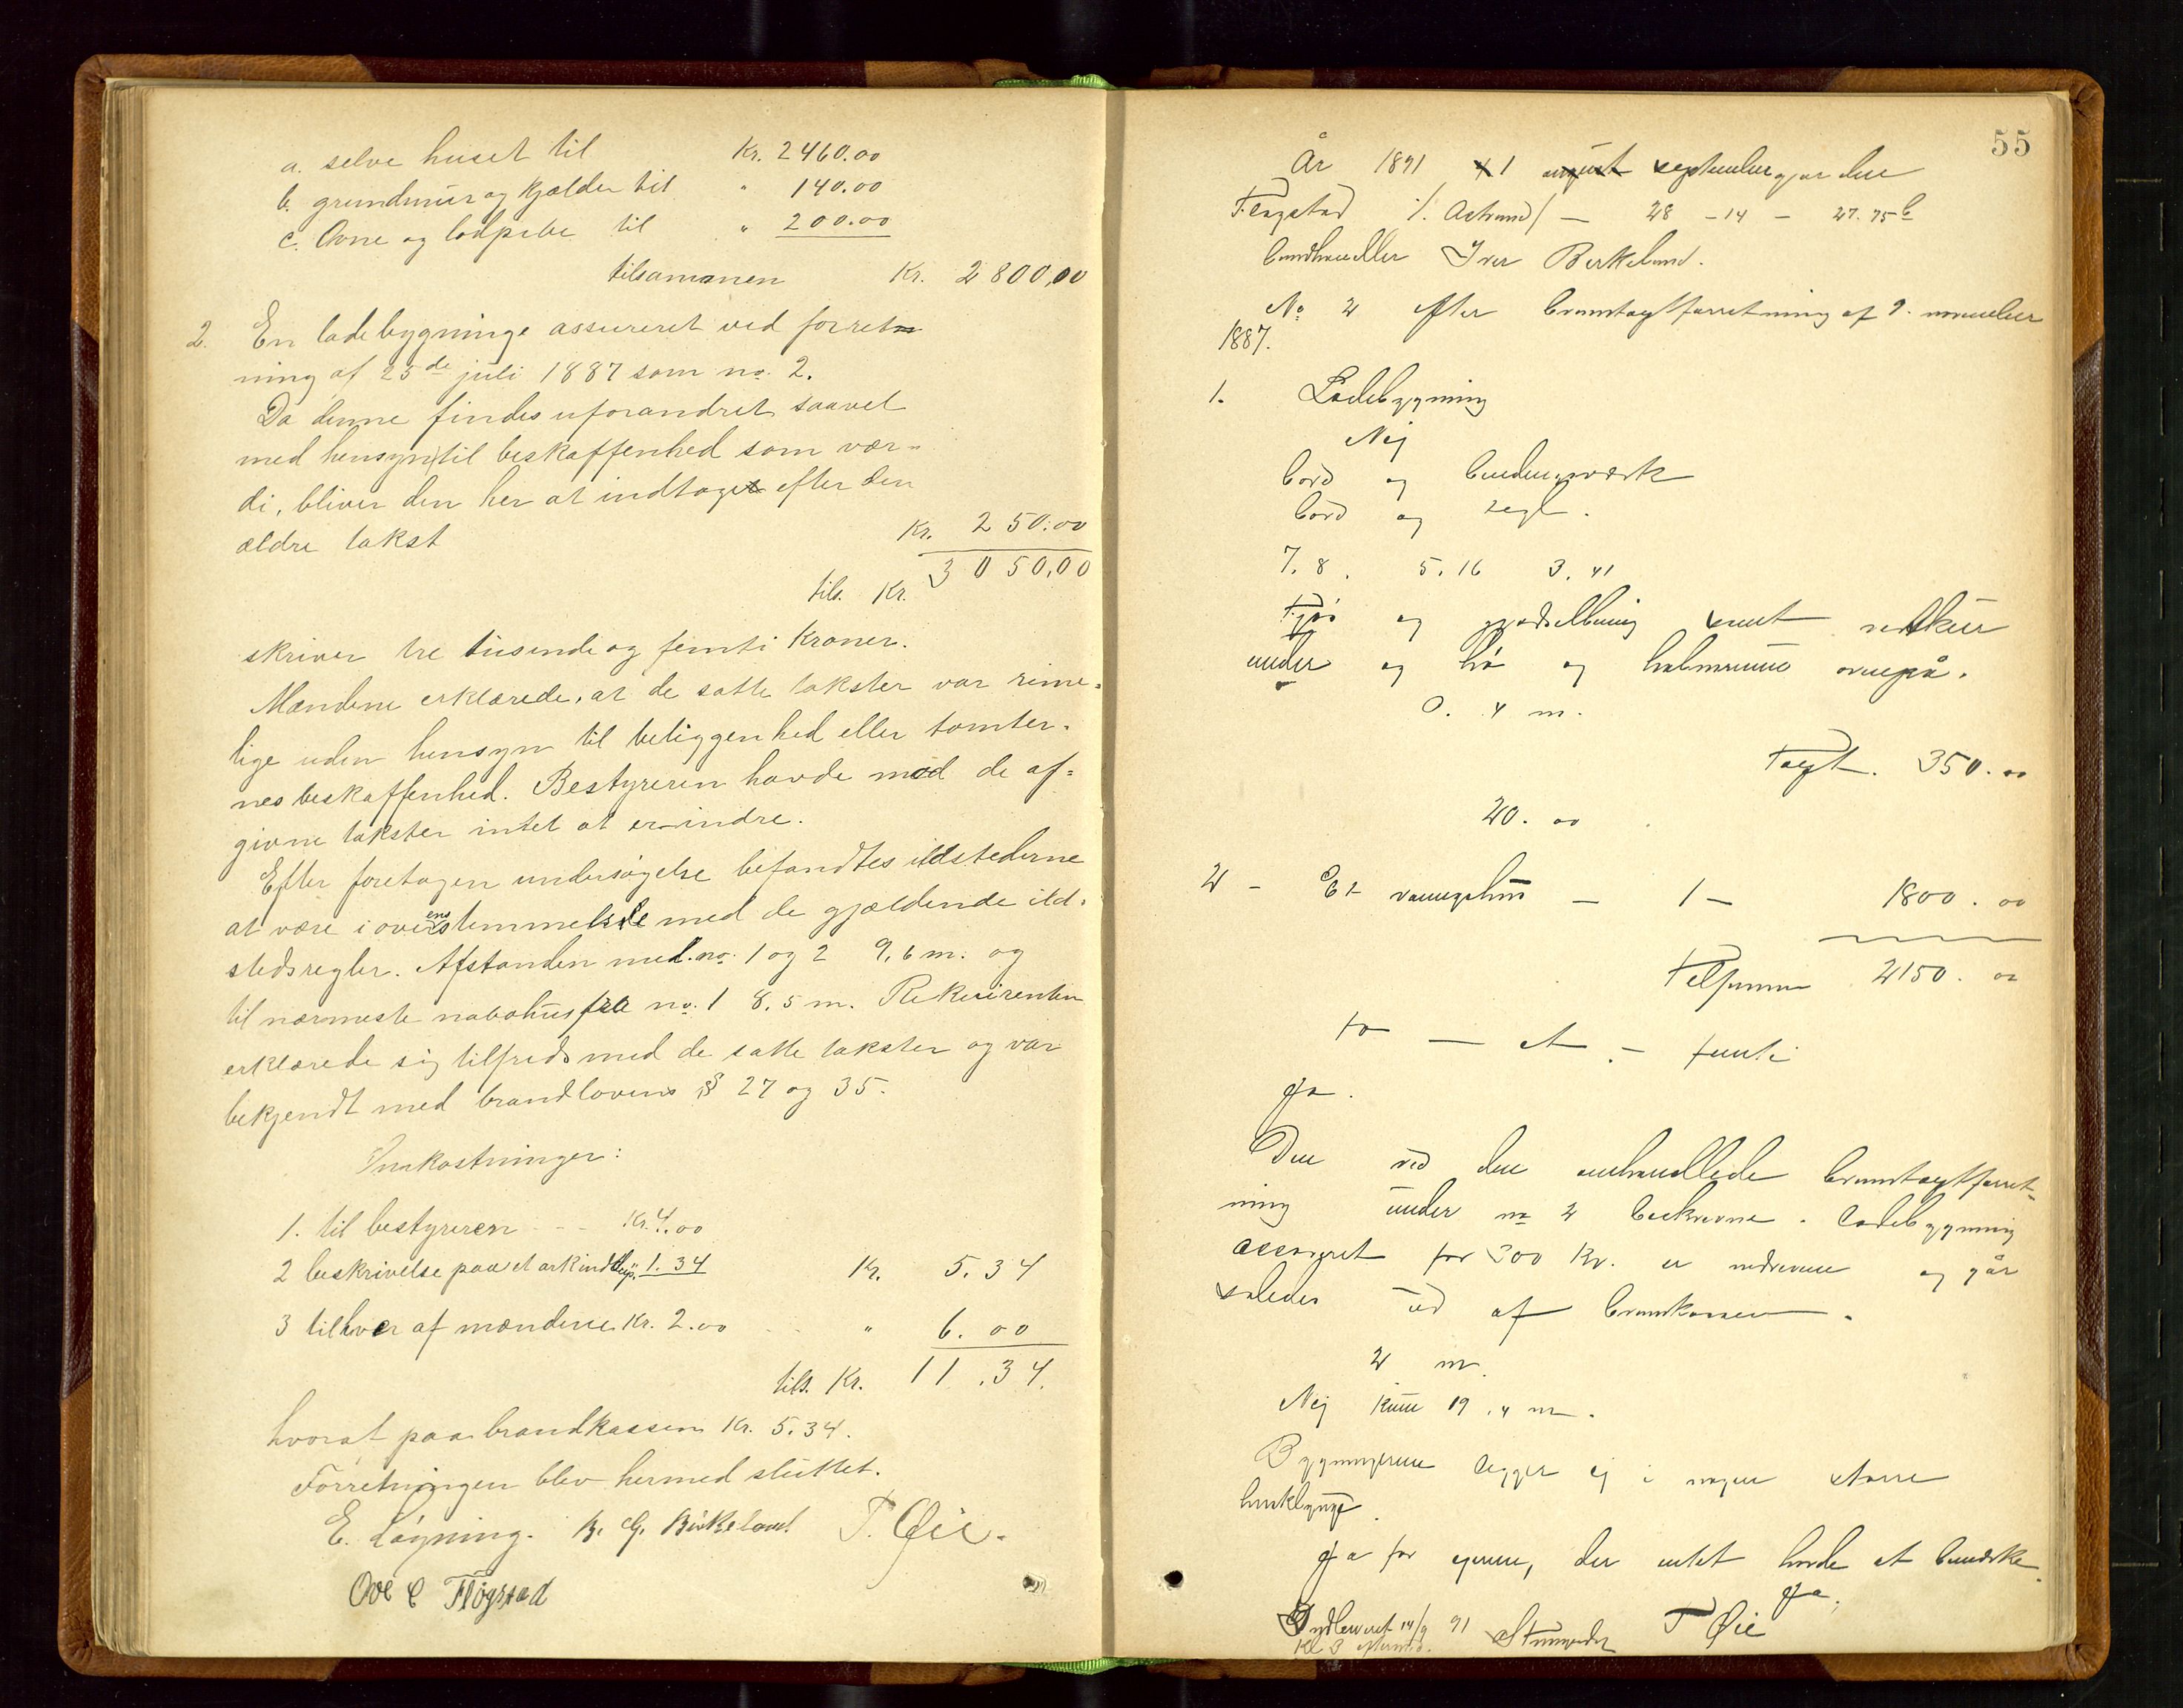 a. selve huset til Kr. 2460.00
b. grundmur og Kjælder til " 140.00
c. Ovne og ladpibe til " 200.00
tilsammen Kr. 2800,00
2. En ladebygninge assureret ved forret-
ning af 25de juli 1887 som no. 2.
Da denne findes uforandret saavel
med hensyn til beskaffenhed som vær-
di, bliver den her at indtages efter den
ældre takst Kr. 250.00
tils. Kr. 3050,00
skriver tre tusinde og femti Kroner.
Mændene erklærede, at de satte takster var rime-
lige uden hensyn til beliggenhed eller tomter-
nes beskaffenhed. Bestyreren havde mod de af-
givne takster intet at erindre.
Efter foretagen undersøgelse befandtes ildstederne
at være i overensstemmelse med de gjældende ild-
stedsregler. Afstanden mel. no. 1 og 2 9,6 m. og
til nærmeste nabohus fra no. 1 8,5 m. Rekvirenten
erklærede sig tilfreds med de satte takster og var
bekjendt med brandlovens § 27 og 35.
Omkostninger:
1. til bestyreren Kr. 4.00
2 beskrivelse paa et ark indbefp. " 1.34 Kr. 5.34
3 til hver af mændene Kr. 2.00 " 6.00
tils. Kr. 11.34.
hvorat paa brandkassen Kr. 5.34.
Forretningen blev hermed sluttet.
E. Løgning. B. G. Birkeland T. Øie.
Ove C Fløgstad
55
År 1891 1 august september gar den
Fløgstad 28 - 14 - 27.75
landhandler Iver Berkeland.
No 2 efter branntagtforretning af 9. november
1887.
1. Ladebygning
Nej
bord og bindingsværk
bord og tegl.
7.8. 5.16 3.41
Fjøs og gjødselbinig samt redskur
under og hø og halmrume ovenpå.
0.4 m.
Tagt. 350.00
20.00
2 - Et vaaningshus - 1 - 1800.00
Tilsammen 2150.00
to - et - femti
Ja.
Den ved den omhandlede branntagtforret-
ning under no 2 beskrevne ladebygning
assureret for 300 Kr. er nedreven og går
saledes ud af brandkassen.
2 m.
Nej kun 19.4 m.
Bygningerne ligger ej i nogen større
husklynge.
Ja for ejeren, der intet havde at bemærke.
Ja.
Indleveret 14/9 91 T Øie
Kl 3 eftermid.